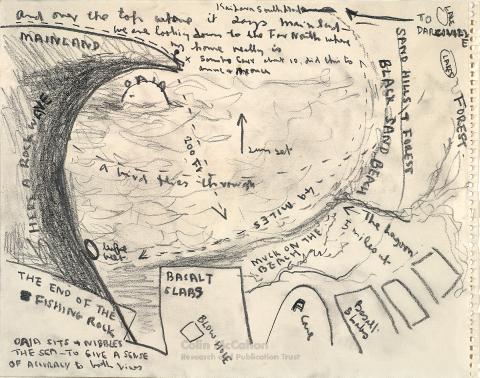 Kaipara South Head
and over the top where it says mainland
we are looking down to the Far North where
my home really is
MAINLAND
TO
LAKE
LAKES
FOREST
SAND HILLS & FOREST
BLACK SAND BEACH
OAIA
HERE A ROCK WAVE
200 FT
sun set
A bird flies through
40 MILES
The Lagoon
5 miles at
MUCK ON THE
BEACH
THE END OF THE
FISHING ROCK
BASALT
SLABS
BLOW HOLE
Cave
Basalt
Slabs
OAIA SITS & NIBBLES
THE SEA - TO GIVE A SENSE
OF ACCURACY to both views
Colin McCahon
Research and Publication Trust